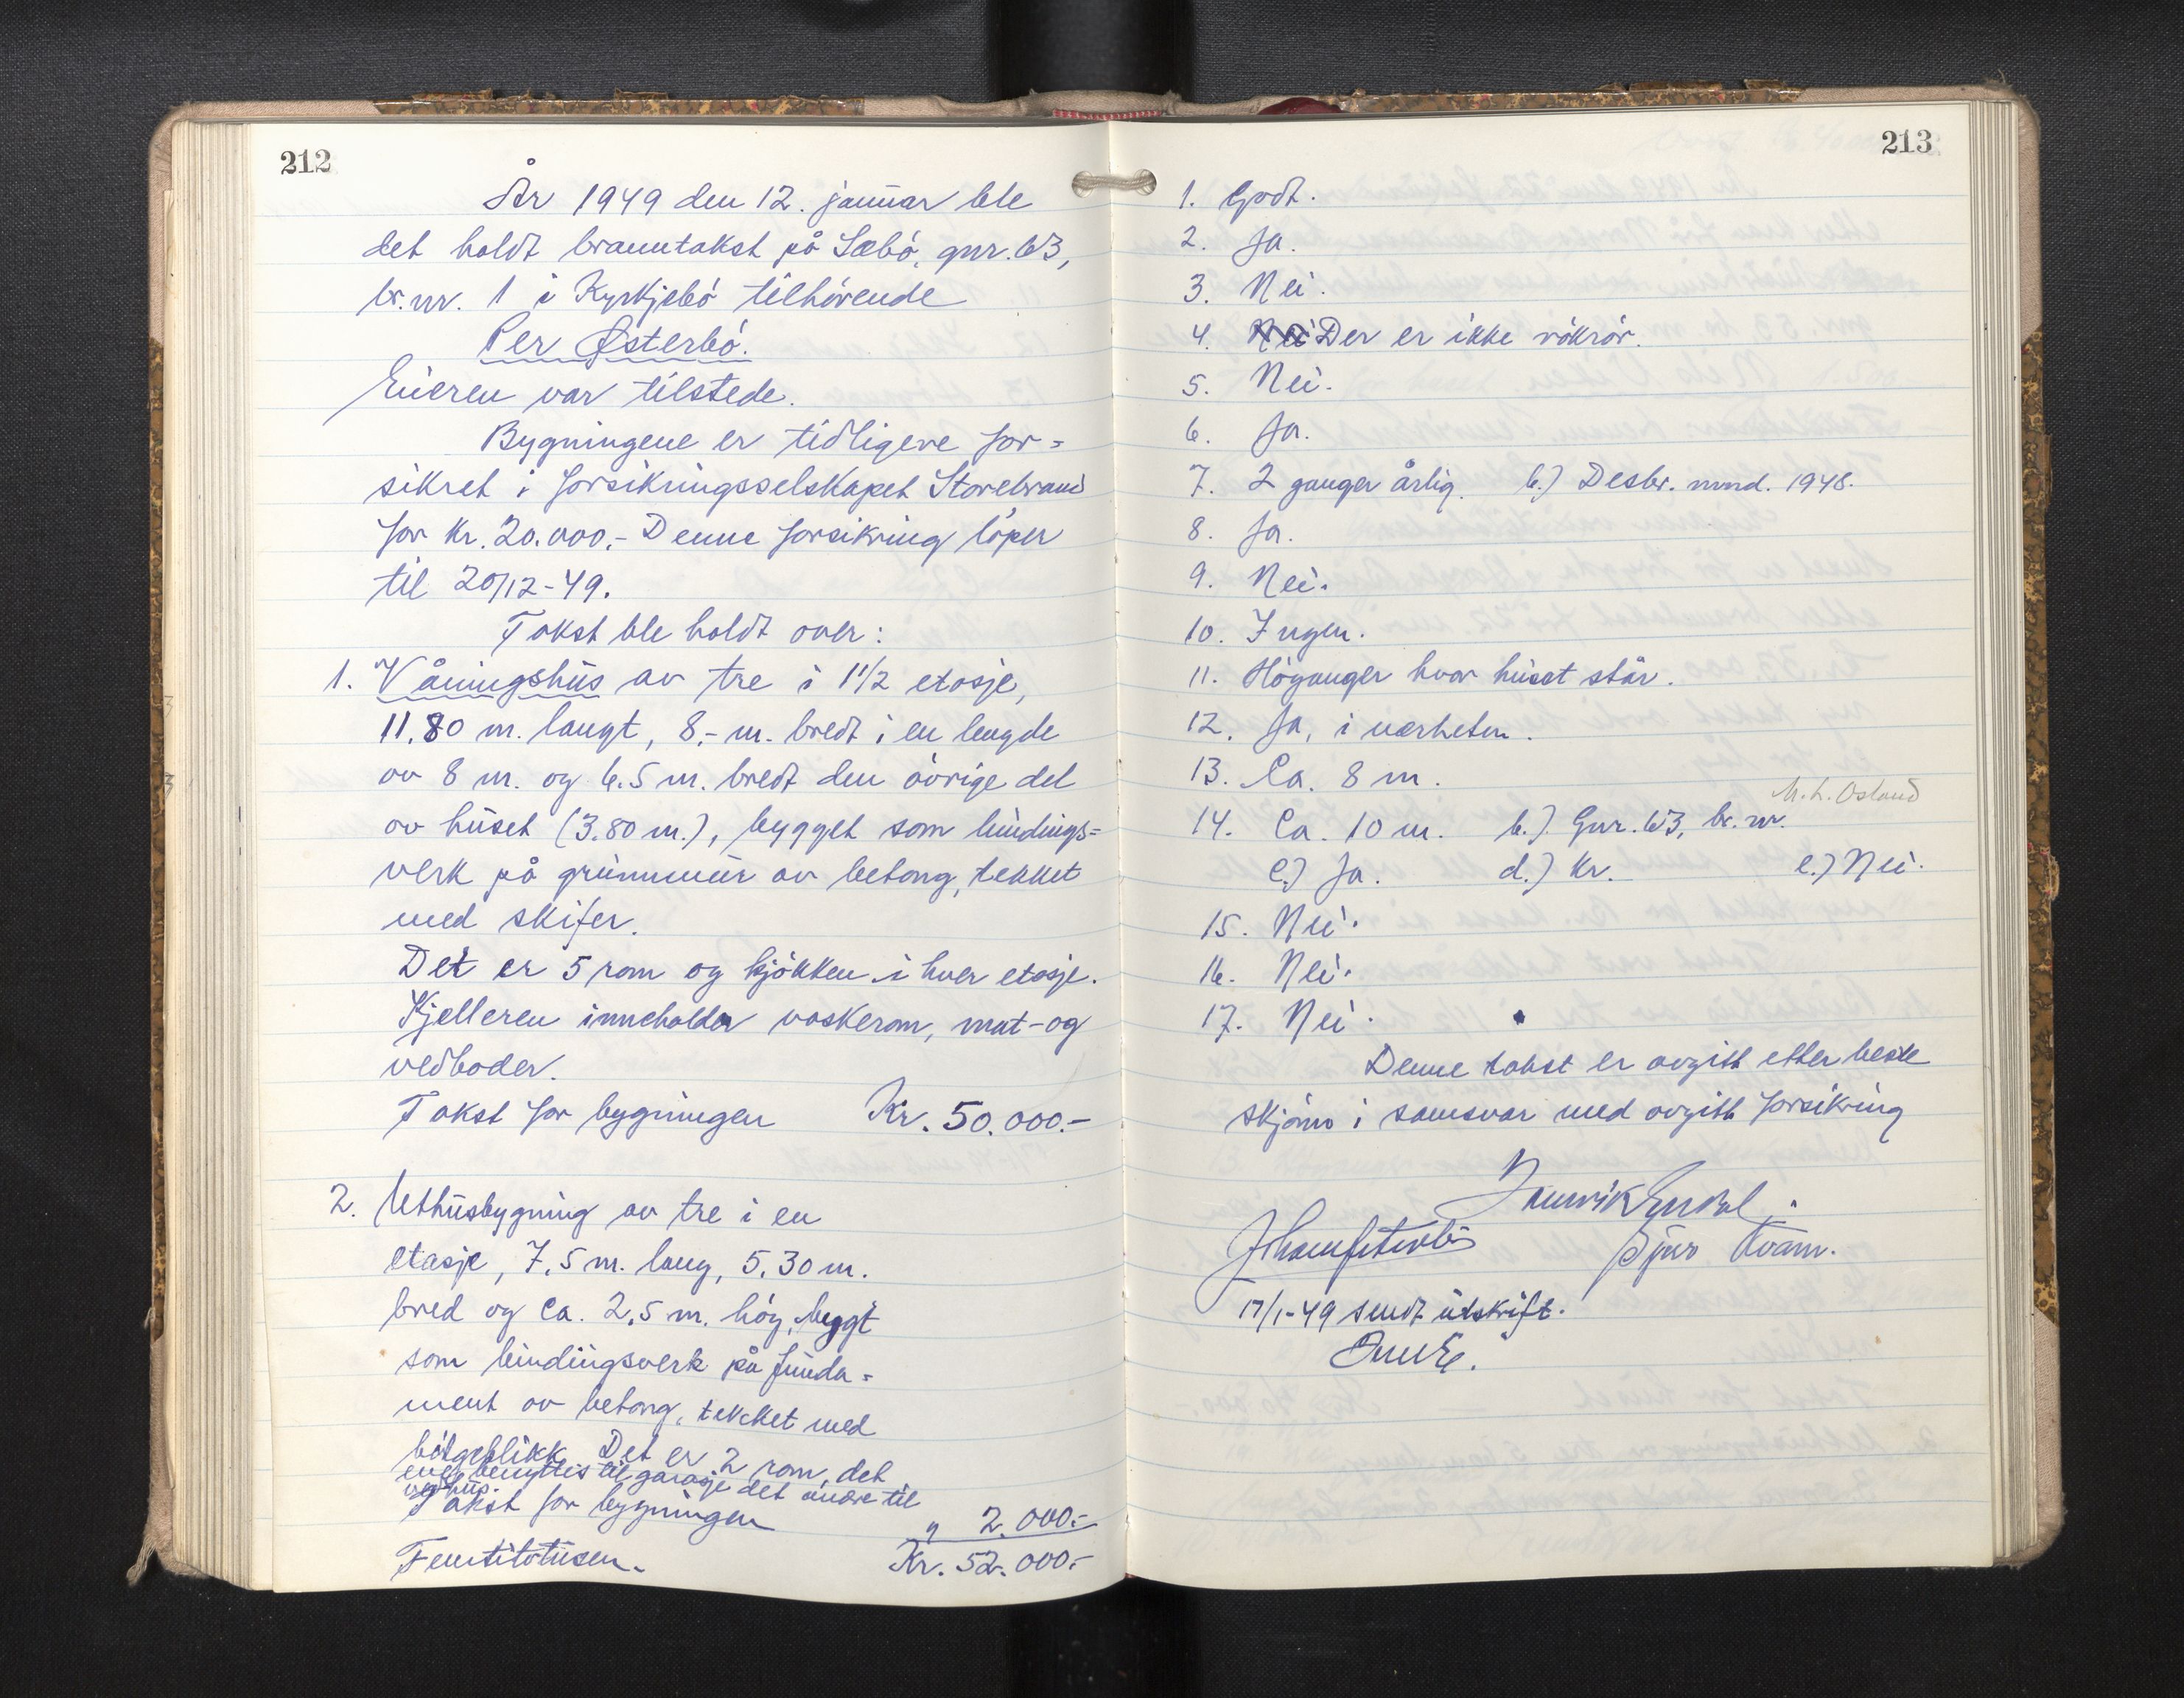 212
År 1949 den 12. januar ble
det holdt branntakst på Sæbö, gnr. 63,
br.nr. 1 i Kyrkjebö tilhörende
Per Østerbö.
Eieren var tilstede.
Bygningene er tidligere for=
sikret i forsikringsselskapet Storebrand
for kr. 20.000,- Denne forsikring löper
til 20/12-49.
Takst ble holdt over:
1. Våningshus av tre i 1 1/2 etasje,
11.80 m. langt, 8,- m. bredt i en lengde
av 8 m. og 6.5 m. bredt den övrige del
av huset (3.80 m.), bygget som bindings=
verk på grunnmur av betong, tekket
med skifer.
Det er 5 rom og kjökken i hver etasje.
Kjelleren inneholder vaskerom, mat- og
vedboder.
Takst for bygningen Kr. 50.000.-
2. Uthusbygning av tre i en
etasje, 7.5 m. lang, 5.30 m.
bred og ca. 2.5 m. höy, bygt
som bindingsverk på funda=
ment av betong, tekket med
bölgeblikk. Det er 2 rom, det
ene benyttes til garasje det andre til
vedhus.
Takst for bygningen " 2.000.-
Femtitotusen. Kr. 52.000.-
213
1. Godt.
2. Ja.
3. Nei.
4. Nei Der er ikke rökrör.
5. Nei.
6. Ja.
7. 2 ganger årlig. b.) Desbr. mnd. 1948.
8. Ja.
9. Nei.
10. Ingen.
11. Höyanger hvor huset står.
12. Ja, i nærheten.
13. Ca. 8 m.
M. L. Osland
14. Ca. 10 m. b.) Gnr. 63, br. nr.
c.) Ja. d.) Kr. e.) Nei.
15. Nei.
16. Nei.
17. Nei.
Denne takst er avgitt etter beste
skjönn i samsvar med avgitt forsikring
Sjur Kvam.
17/1-49 sendt utskrift.